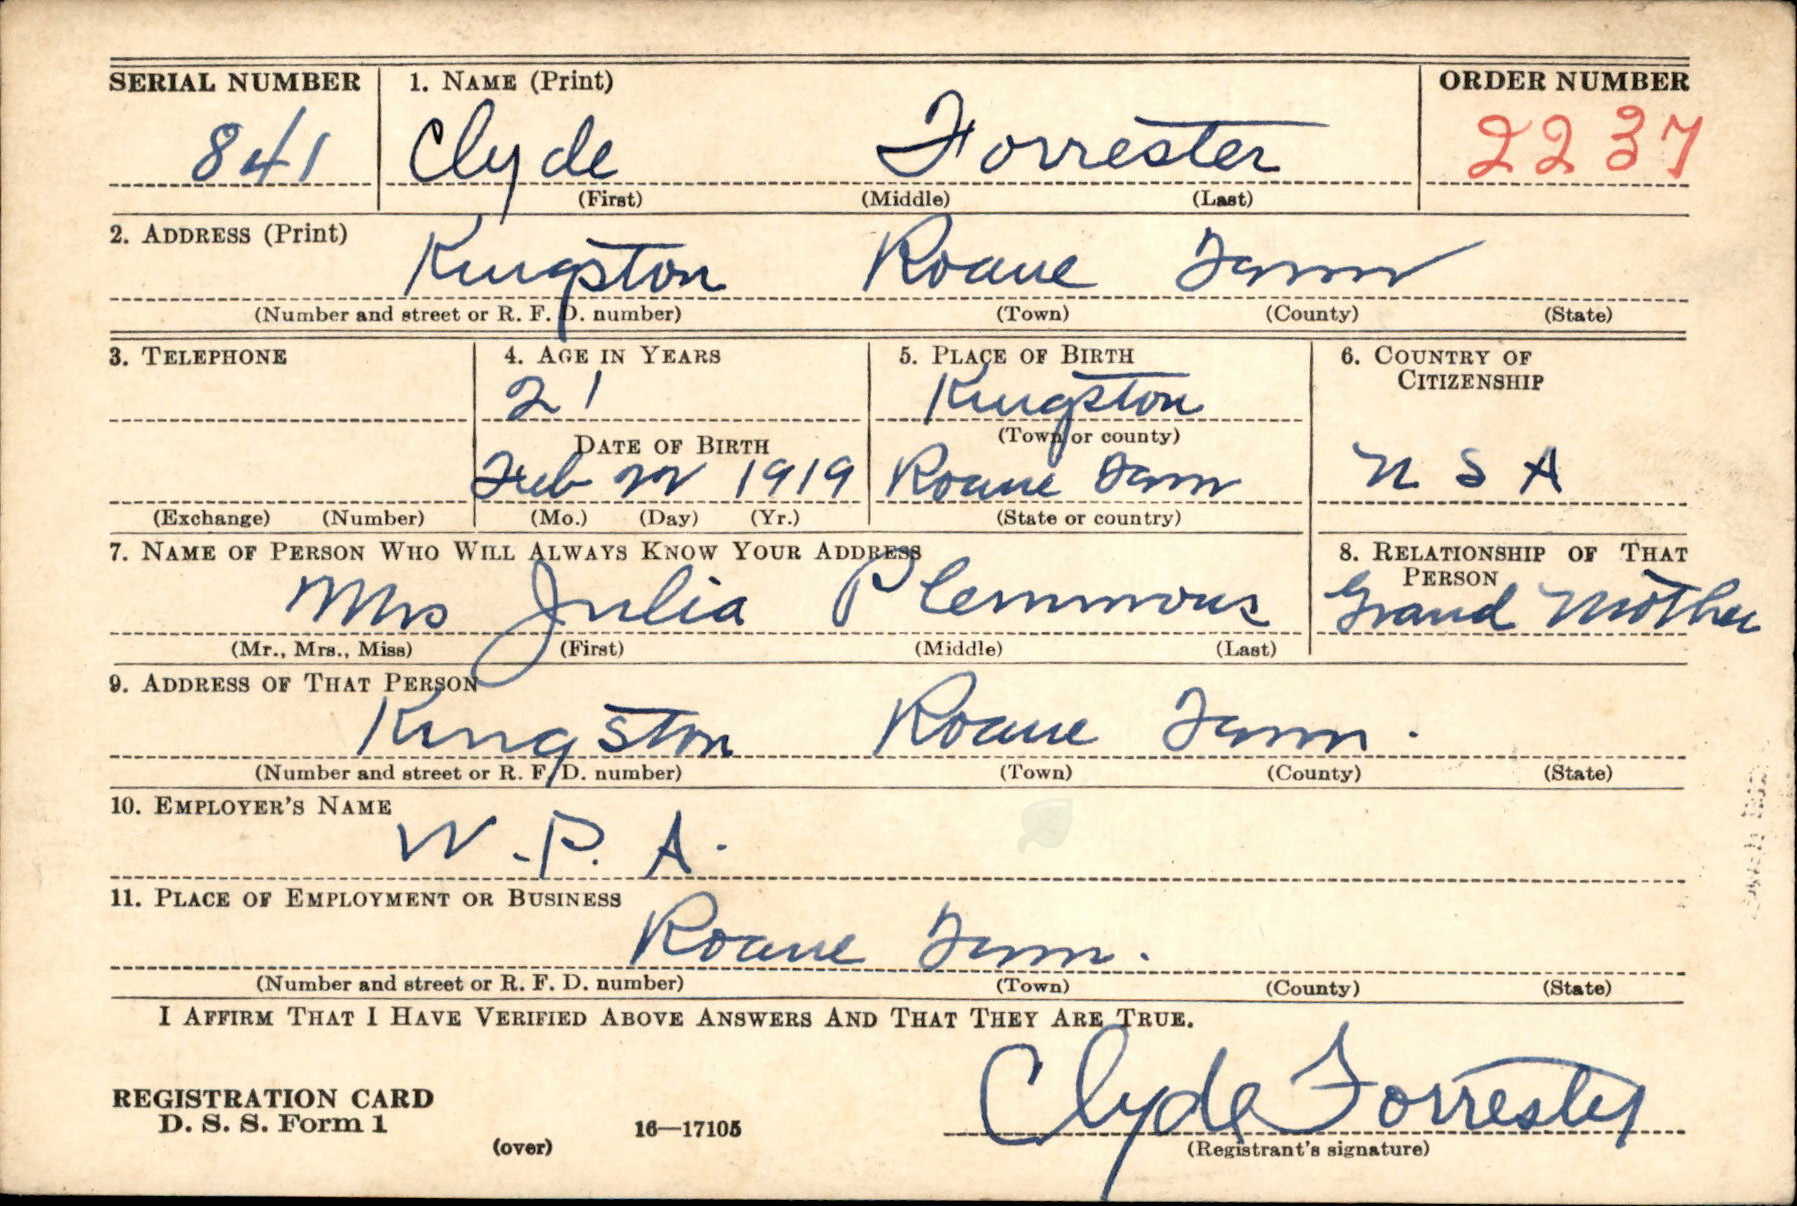 SERIAL NUMBER 1. NAME (Print) ORDER NUMBER
841 Clyde Forrester 2237
(First) (Middle) (Last)
2. ADDRESS (Print)
Kingston Roane Tenn
(Number and street or R. F. D. number) (Town) (County) (State)
3. TELEPHONE 4. AGE IN YEARS 5. PLACE OF BIRTH 6. COUNTRY OF CITIZENSHIP
21 Kingston
(Town or county)
DATE OF BIRTH
Feb 22 1919 Roane Tenn U S A
(Exchange) (Number) (Mo.) (Day) (Yr.) (State or country)
7. NAME OF PERSON WHO WILL ALWAYS KNOW YOUR ADDRESS 8. RELATIONSHIP OF THAT PERSON
Mrs Julia Plemmons Grand Mother
(Mr., Mrs., Miss) (First) (Middle) (Last)
9. ADDRESS OF THAT PERSON
Kingston Roane Tenn.
(Number and street or R. F. D. number) (Town) (County) (State)
10. EMPLOYER'S NAME
W.P.A.
11. PLACE OF EMPLOYMENT OR BUSINESS
Roane Tenn.
(Number and street or R. F. D. number) (Town) (County) (State)
I AFFIRM THAT I HAVE VERIFIED ABOVE ANSWERS AND THAT THEY ARE TRUE.
Clyde Forrester
REGISTRATION CARD
D. S. S. Form 1
(over) 16—17105 (Registrant's signature)